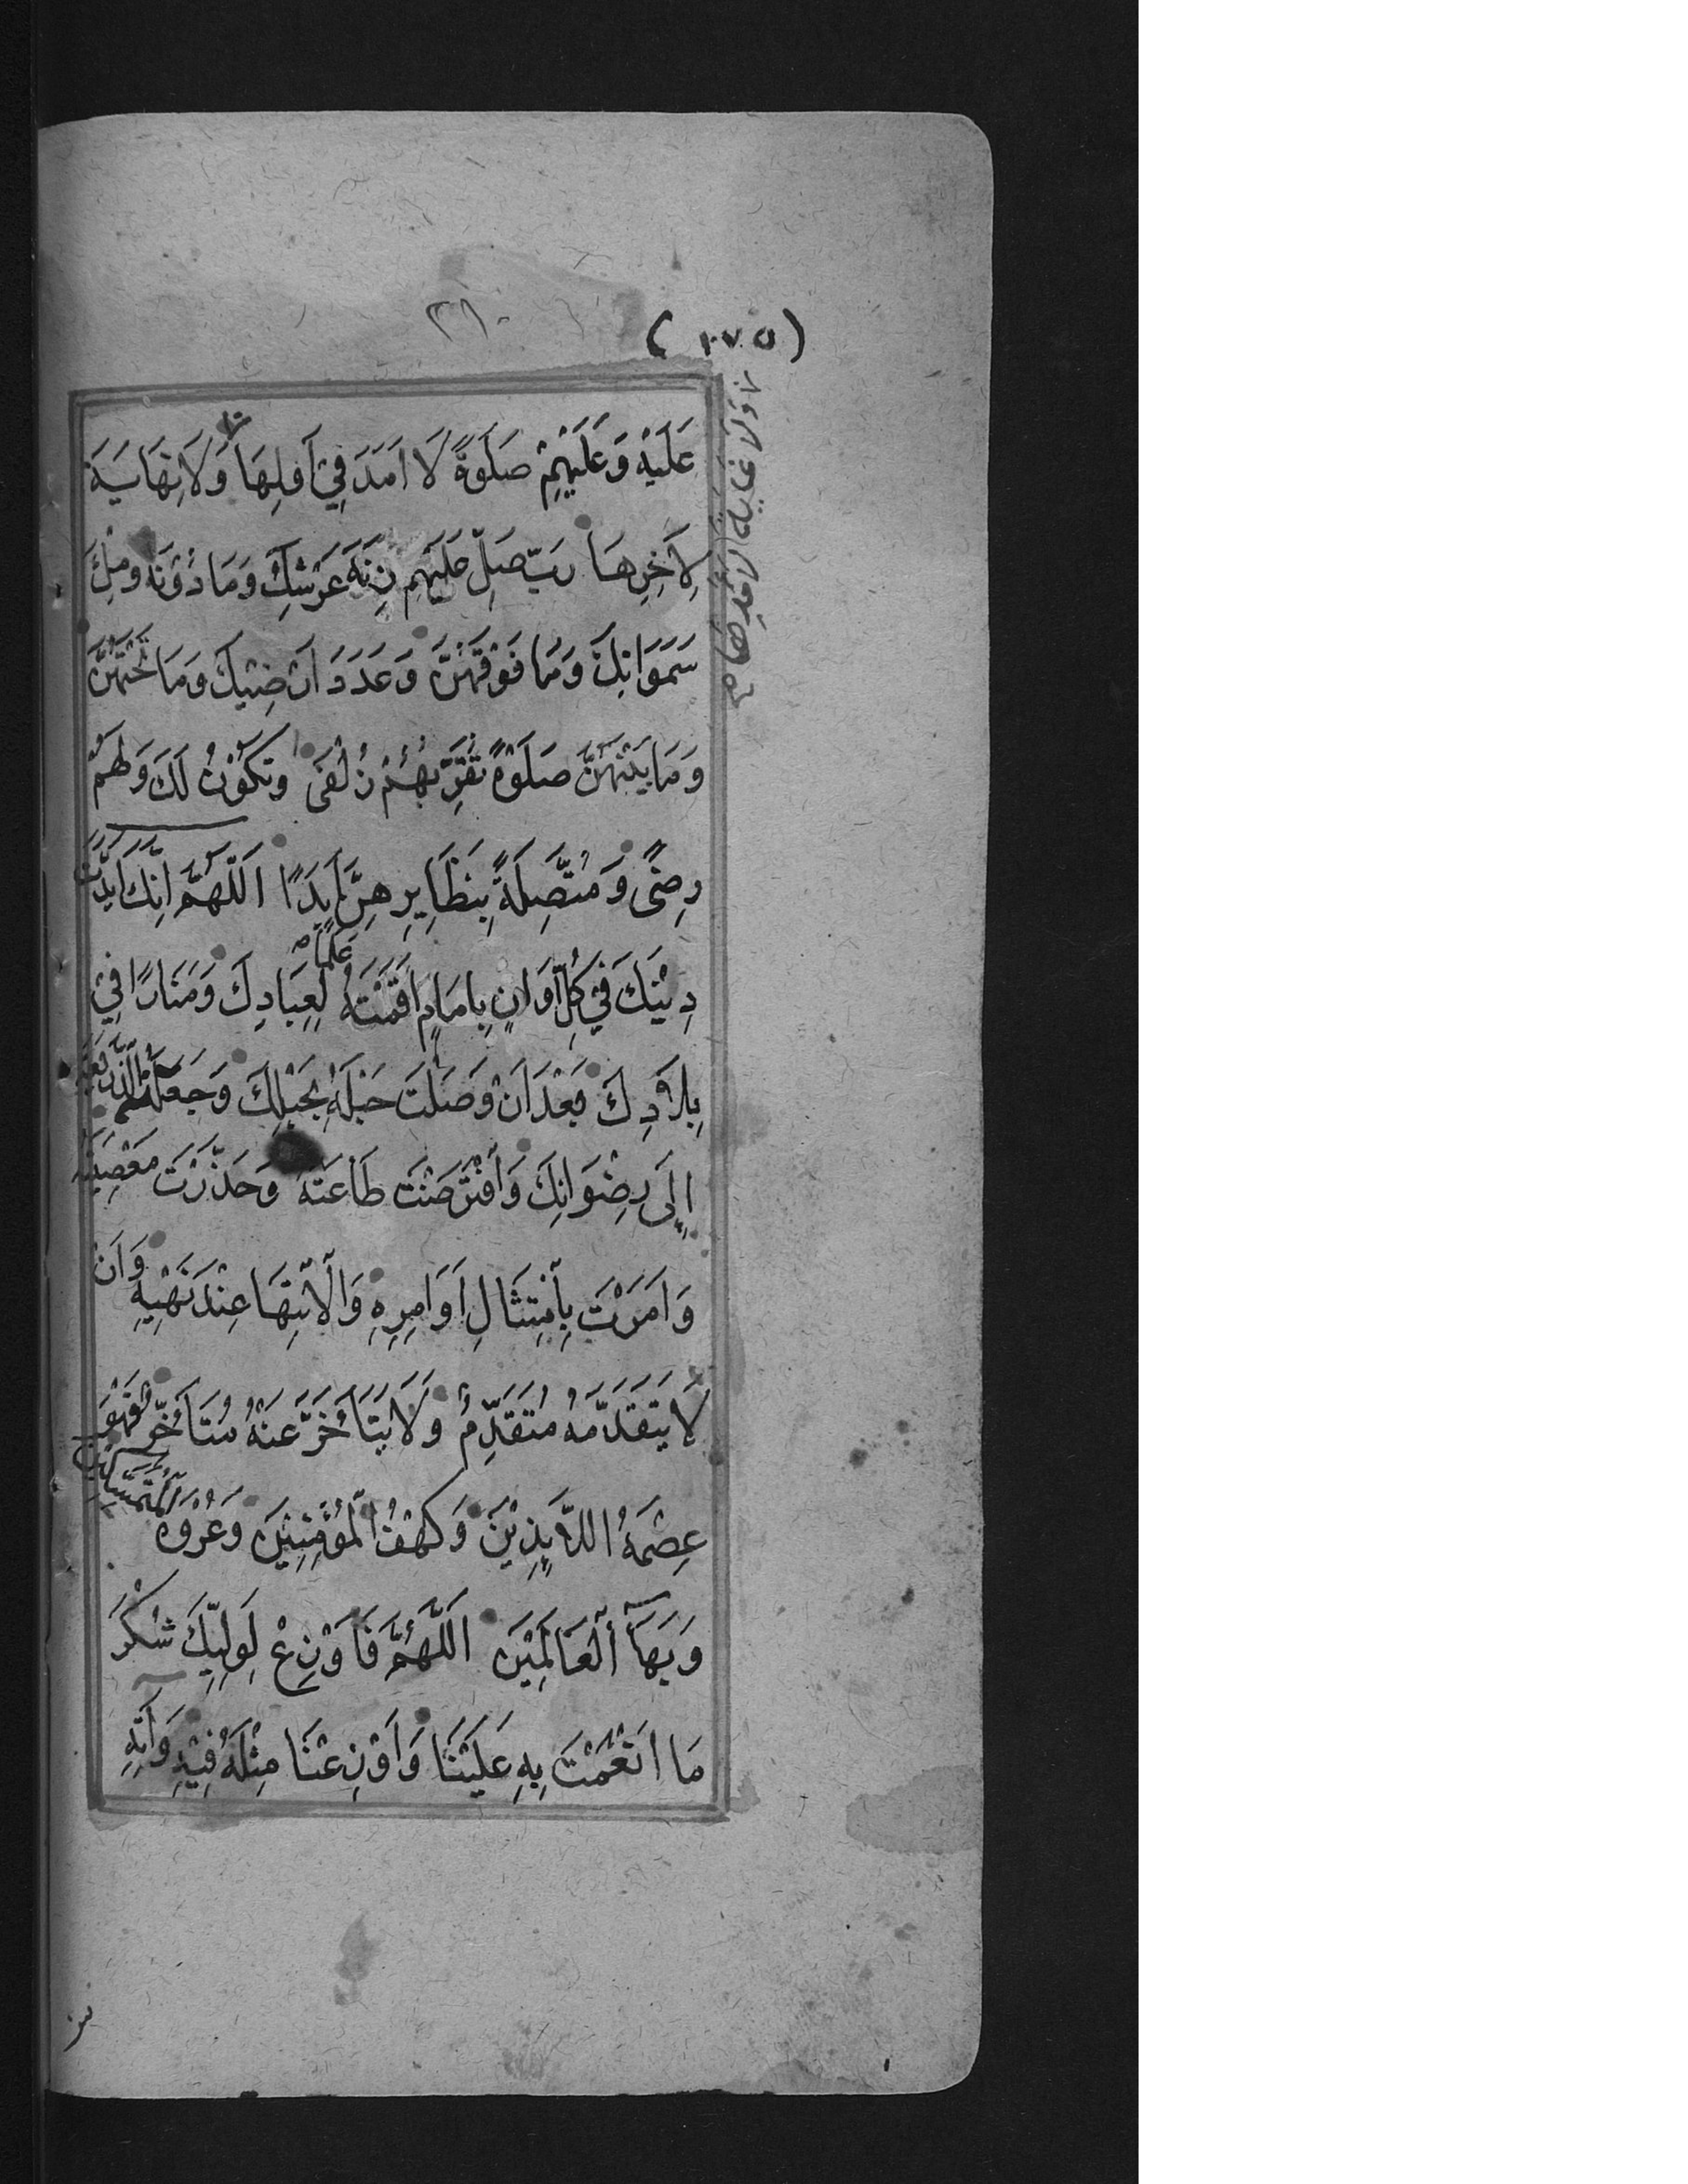 ٢٨٠
(٢٧٥)
عَلَيْهِ وَعَلَيْهِمْ صَلَوةً لَا اَمَدَ فِيْ اَوَّلِهَا وَلَا نِهَايَةَ
وَلَا غَايَةَ لِاَمَدِهَا
لِاٰخِرِهَا رَبِّ صَلِّ عَلَيْهِمْ زِنَةَ عَرْشِكَ وَمَا دُوْنَهُ وَمِلْءَ
سَمَوَاتِكَ وَمَا فَوْقَهُنَّ وَعَدَدَ اَرَضِيْكَ وَمَا تَحْتَهُنَّ
وَمَا بَيْنَهُنَّ صَلَوةً تُقَرِّبُهُمْ زُلْفَى وَتَكُوْنُ لَكَ وَلَهُمْ
رِضًى وَمُتَّصِلَةً بِنَظَايِرِهِنَّ اَبَدًا اَللّٰهُمَّ اِنَّكَ اَيَّدْتَ
دِيْنَكَ فِيْ كُلِّ اَوَانٍ بِاِمَامٍ اَقَمْتَهُ عَلَمًا لِعِبَادِكَ وَمَنَارًا فِيْ
بِلَادِكَ بَعْدَ اَنْ وَصَلْتَ حَبْلَهُ بِحَبْلِكَ وَجَعَلْتَهُ الذَّرِيْعَةَ
اِلَى رِضْوَانِكَ وَافْتَرَضْتَ طَاعَتَهُ وَحَذَّرْتَ مَعْصِيَتَهُ
وَاَمَرْتَ بِامْتِثَالِ اَوَامِرِهِ وَالْاِنْتِهَا عِنْدَ نَهْيِهِ وَاَنْ
لَا يَتَقَدَّمَهُ مُتَقَدِّمٌ وَلَا يَتَاَخَّرَ عَنْهُ مُتَاَخِّرٌ فَهُوَ
عِصْمَةُ اللَّايِذِيْنَ وَكَهْفُ الْمُؤْمِنِيْنَ وَعُرْوَةُ الْمُتَمَسِّكِيْنَ
وَبَهَآءُ الْعَالَمِيْنَ اَللّٰهُمَّ فَاَوْزِعْ لِوَلِيِّكَ شُكْرَ
مَا اَنْعَمْتَ بِهِ عَلَيْنَا وَاَوْزِعْنَا مِثْلَهُ فِيْهِ وَاٰتِهِ